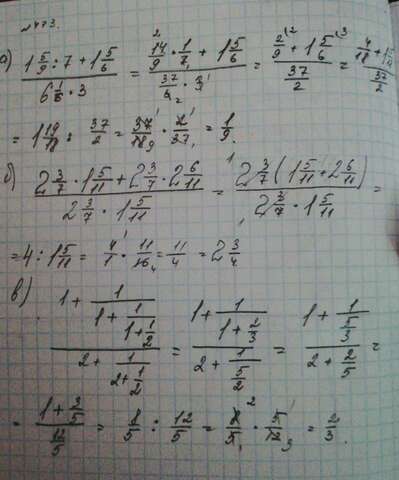 № 473.
а) (1 5/9 : 7 + 1 5/6) / (6 1/6 · 3) = (14/9 · 1/7 + 1 5/6) / (37/6 · 3) = (2/9 + 1 5/6) / (37/2) = (4/18 + 1 15/18) / (37/2)
= 1 19/18 : 37/2 = 37/18 · 2/37 = 1/9.
б) (2 3/7 · 1 5/11 + 2 3/7 · 2 6/11) / (2 3/7 · 1 5/11) = (2 3/7 (1 5/11 + 2 6/11)) / (2 3/7 · 1 5/11) =
= 4 : 1 5/11 = 4/1 · 11/16 = 11/4 = 2 3/4
в) (1 + 1/(1 + 1/(1 + 1/2))) / (2 + 1/(2 + 1/2)) = (1 + 1/(1 + 2/3)) / (2 + 1/(5/2)) = (1 + 1/(5/3)) / (2 + 2/5) =
= (1 + 3/5) / (12/5) = 8/5 : 12/5 = 8/5 · 5/12 = 2/3.